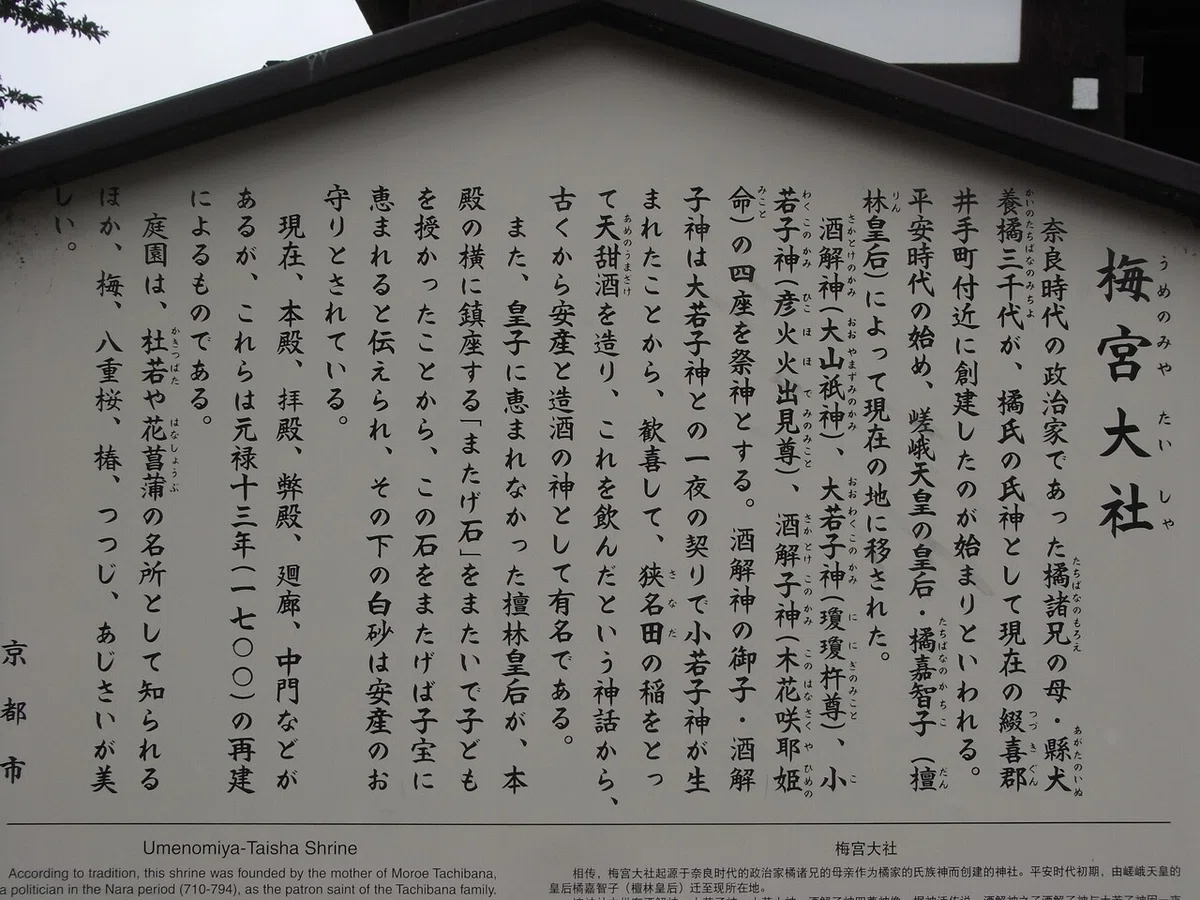 梅宮大社
うめのみや たいしゃ
奈良時代の政治家であった橘諸兄の母・縣犬
たちばなのもろえ あがたのいぬ
養橘三千代が、橘氏の氏神として現在の綴喜郡
かいのたちばなのみちよ つづきぐん
井手町付近に創建したのが始まりといわれる。
平安時代の始め、嵯峨天皇の皇后・橘嘉智子（檀
たちばなのかちこ だん
林皇后）によって現在の地に移された。
りん
酒解神（大山祇神）、大若子神（瓊瓊杵尊）、小
さかとけのかみ おおやまずみのかみ おおわくこのかみ ににぎのみこと こ
若子神（彦火火出見尊）、酒解子神（木花咲耶姫
わくこのかみ ひこほほでみのみこと さかとけこのかみ このはなさくやひめの
命）の四座を祭神とする。酒解神の御子・酒解
みこと
子神は大若子神との一夜の契りで小若子神が生
まれたことから、歓喜して、狭名田の稲をとっ
さなだ
て天甜酒を造り、これを飲んだという神話から、
あめのうまざけ
古くから安産と造酒の神として有名である。
また、皇子に恵まれなかった檀林皇后が、本
殿の横に鎮座する「またげ石」をまたいで子ども
を授かったことから、この石をまたげば子宝に
恵まれると伝えられ、その下の白砂は安産のお
守りとされている。
現在、本殿、拝殿、弊殿、廻廊、中門などが
あるが、これらは元禄十三年（一七〇〇）の再建
によるものである。
庭園は、杜若や花菖蒲の名所として知られる
かきつばた はなしょうぶ
ほか、梅、八重桜、椿、つつじ、あじさいが美
しい。
京都市
Umenomiya-Taisha Shrine
According to tradition, this shrine was founded by the mother of Moroe Tachibana,
a politician in the Nara period (710-794), as the patron saint of the Tachibana family.
梅宮大社
相传，梅宫大社起源于奈良时代的政治家橘诸兄的母亲作为橘家的氏族神而创建的神社。平安时代初期，由嵯峨天皇的
皇后橘嘉智子（檀林皇后）迁至现所在地。